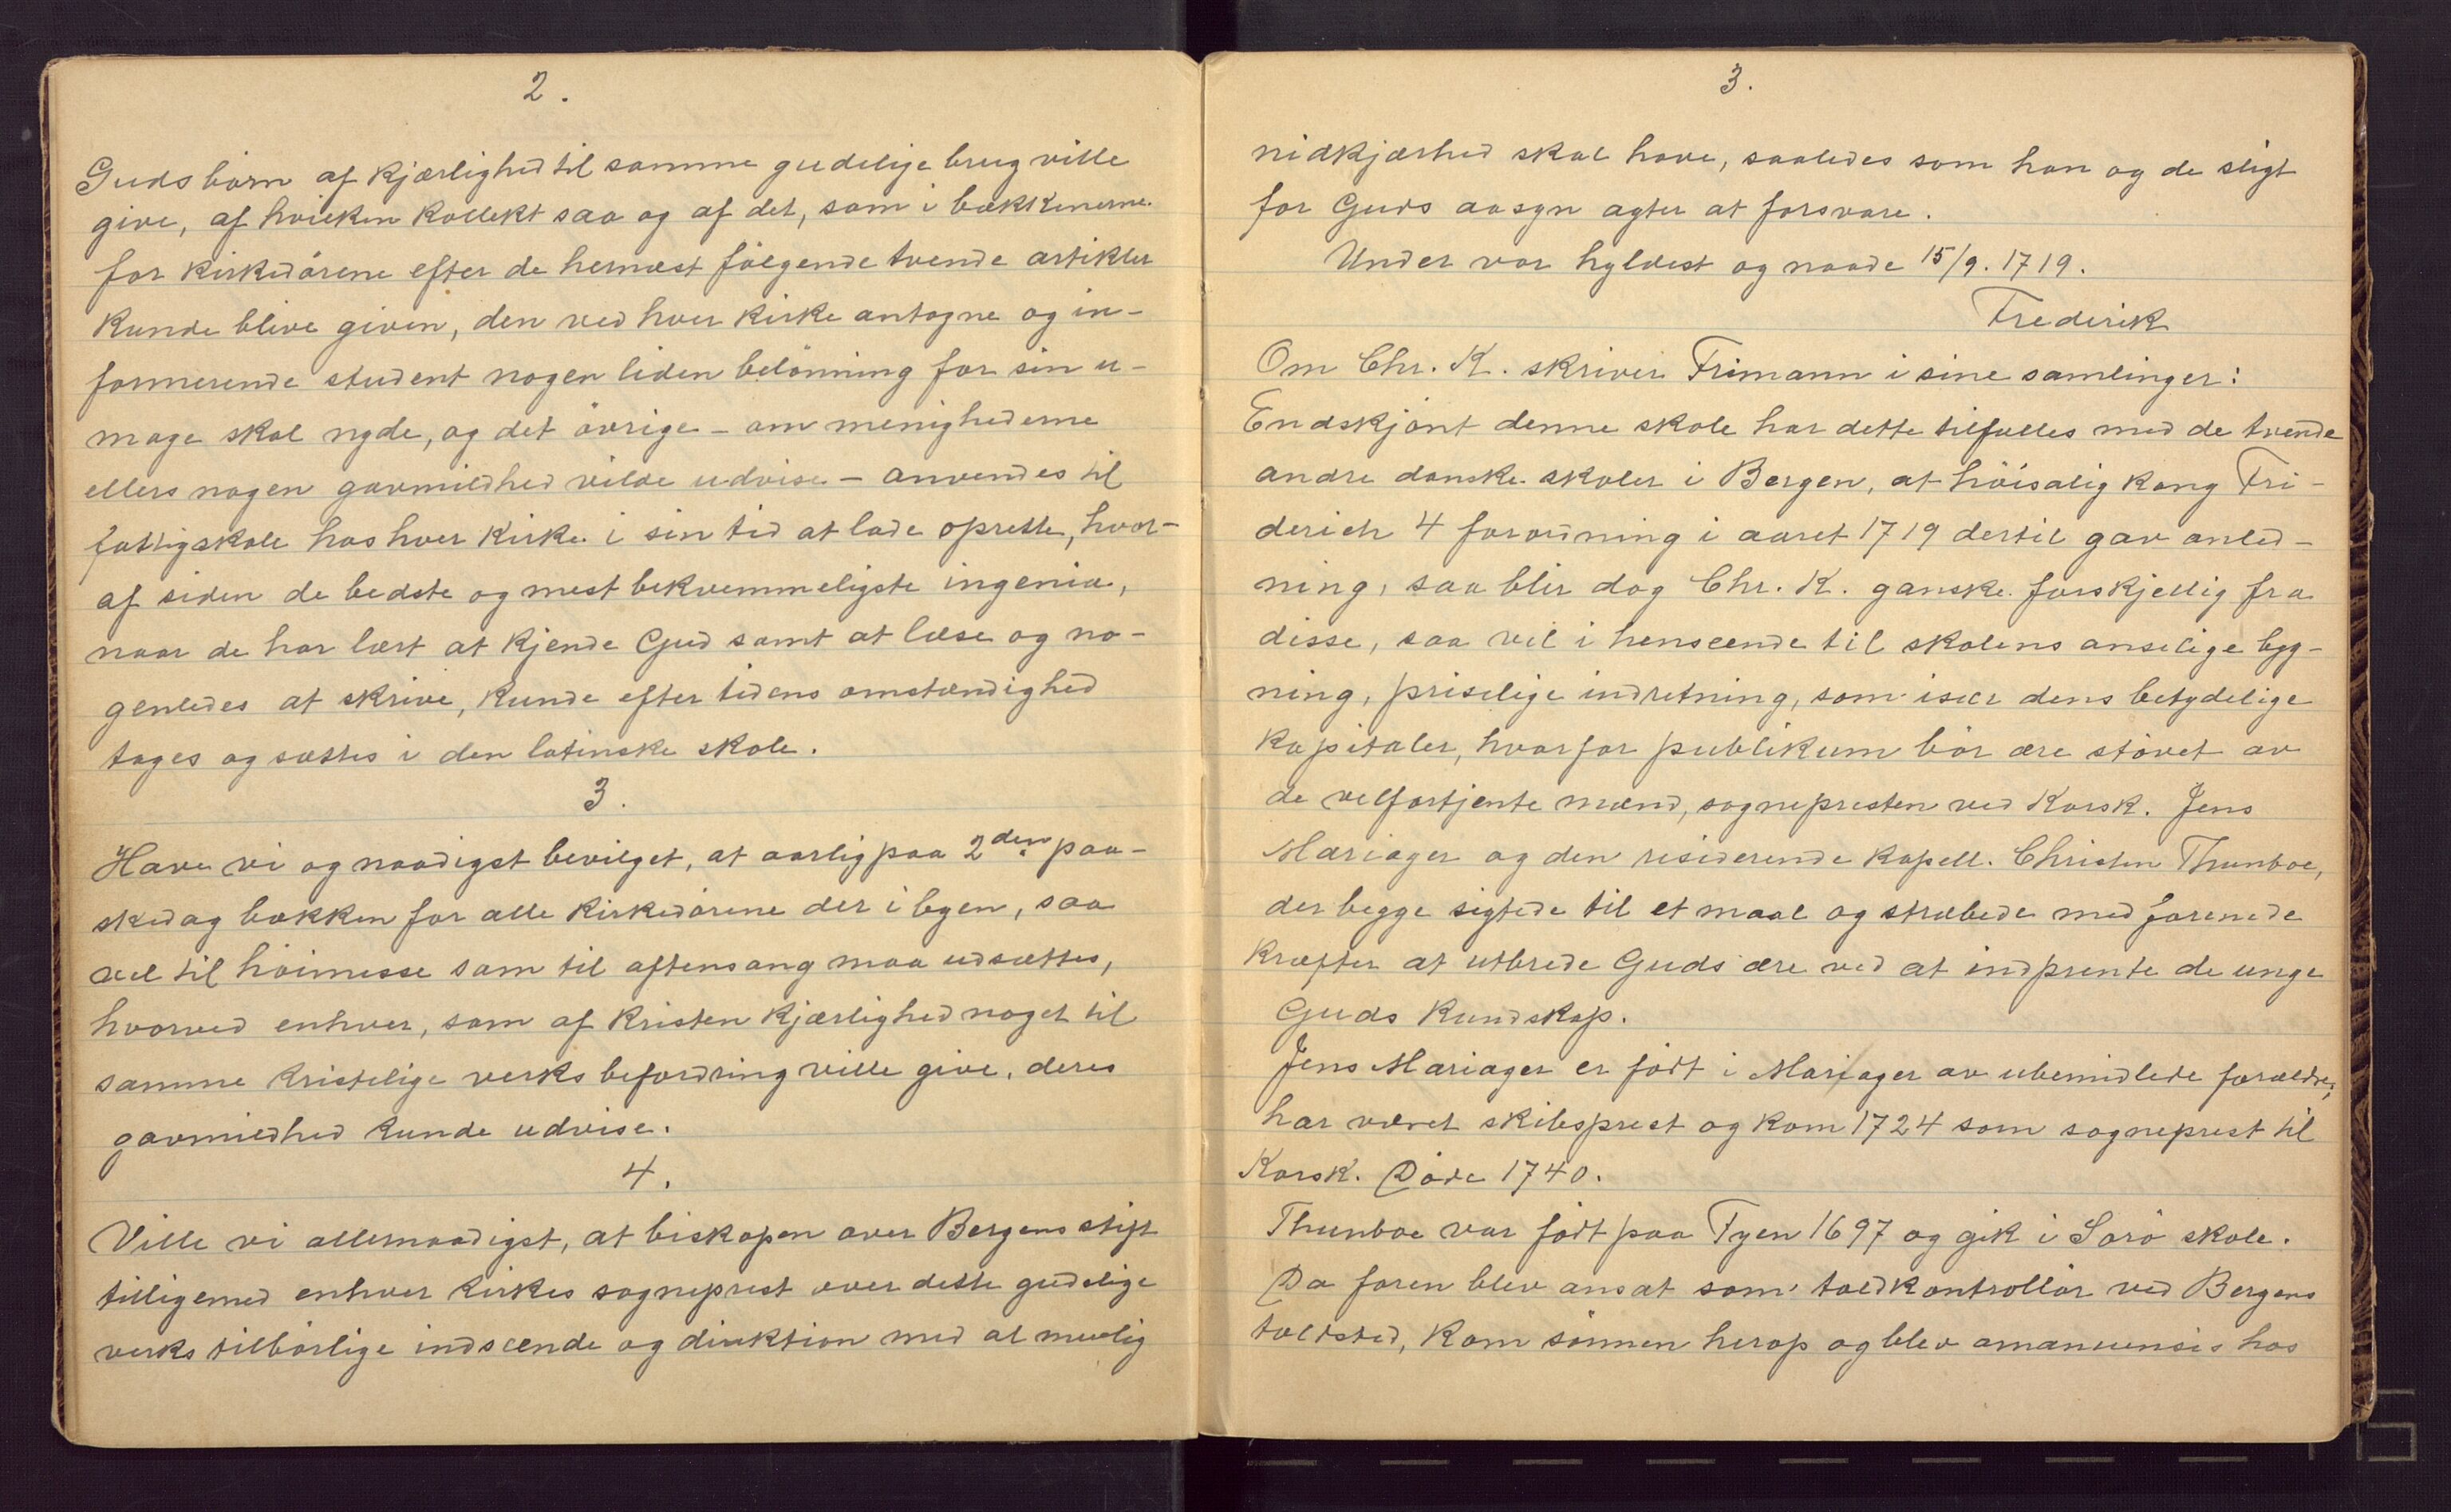 2.
Guds børn af kjærlighed til samme gudelige brug ville
give, af hvilken kollekt saa og af det, som i bækkenerne
for kirkedörene efter de hernæst fölgende tvende artikler
kunde blive given, den ved hver kirke antagne og in-
formerende student nogen liden belönning for sin u-
mage skal nyde, og det övrige - om menighederne
ellers nogen gavmildhed vilde udvise - anvendes til
fattigskole hos hver kirke i sin tid at lade oprette, hvor-
af siden de bedste og mest bekvemmeligste ingenia,
naar de har lært at kjende Gud samt at læse og no-
genledes at skrive, kunde efter tidens omstændighed
tages og sættes i den latinske skole.
3.
Have vi og naadigst bevilget, at aarlig paa 2den paa-
skedag bækken for alle kirkedörene der i byen, saa
vel til höimesse som til aftensang maa udsættes,
hvorved enhver, som af kristen kjærlighed noget til
samme kristelige verks befordring ville give, deres
gavmildhed kunde udvise.
4.
Ville vi allernaadigst, at biskopen over Bergens stift
tilligemed enhver kirkes sogneprest over dette gudelige
verks tilbörlige indseende og direktion med al muelig
3.
nidkjærhed skal have, saaledes som han og de sligt
for Guds aasyn agter at forsvare.
Under vor hyldest og naade 15/9. 1719.
Frederik
Om Chr. K. skriver Frimann i sine samlinger:
Endskjönt denne skole har dette tilfælles med de tvende
andre danske skoler i Bergen, at höisalig kong Fri-
derich 4 forordning i aaret 1719 dertil gav anled-
ning, saa blir dog Chr. K. ganske forskjellig fra
disse, saa vel i henseende til skolens anselige byg-
ning, priselige indretning, som især dens betydelige
kapitaler, hvorfor publikum bör ære stövet av
de velfortjente mænd, sognepresten ved Korsk. Jens
Mariager og den residerende kapell. Christen Thunboe,
der begge sigtede til et maal og stræbede med forenede
kræfter at utbrede Guds ære ved at indprente de unge
Guds kundskap.
Jens Mariager er født i Mariager av ubemidlede forældre;
har været skibsprest og kom 1724 som sogneprest til
Korsk. Döde 1740.
Thunboe var födt paa Fyen 1697 og gik i Sorö skole.
Da faren blev ansat som toldkontrollör ved Bergens
toldsted, kom sönnen herop og blev amanuensis hos